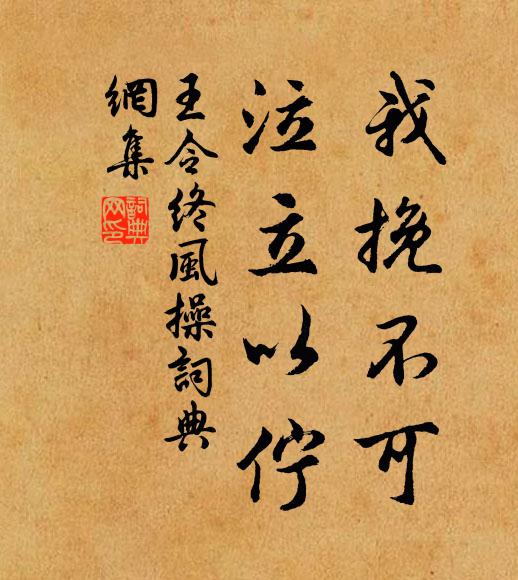 我挽不可
泣立以佇
王令終風操詞典
網集
詞典
网印